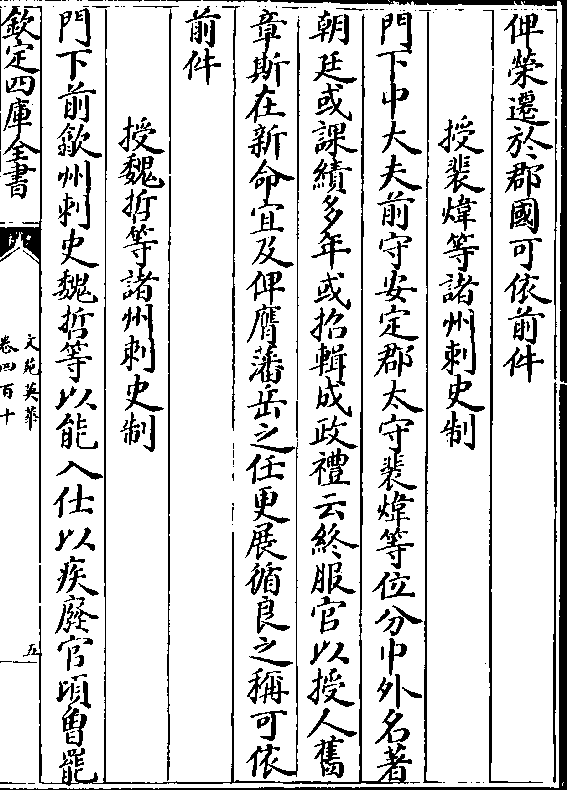 俾榮遷於郡國可依前件
授裴煒等諸州刺史制
門下中大夫前守安定郡太守裴煒等位分中外名著
朝廷或課績多年或招輯成政禮云終服官以授人舊
章斯在新命宜及俾膺藩岳之任更展循良之稱可依
前件
授魏哲等諸州刺史制
門下前歙州刺史魏哲等以能入仕以疾廢官頃曾罷
欽定四庫全書
文苑英華
卷四百十
五